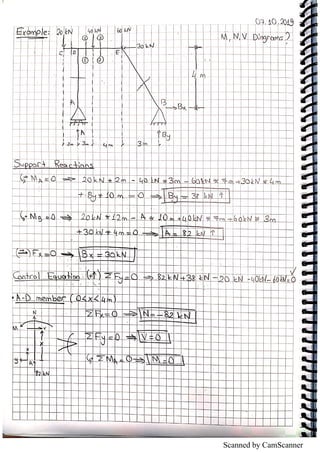 07.10.2019
Example: 20 kN 40 kN 60 kN
M, N, V Diagrams?
30 kN
C D E
4 m
A
B Bx
A By
3m 4m 3m
Support Reactions
ΣMA=0 ⇒ 20kN*2m - 40kN*3m - 60kN*7m + 30kN*4m
+ By*10m = 0 ⇒ By = 38 kN ↑
ΣMB=0 ⇒ 20kN*12m - A*10m + 40kN*7m + 60kN*3m
+30kN*4m=0 ⇒ A = 82 kN ↑
(→) Fx=0 ⇒ Bx = 30kN
Control Equation (+↑) ΣFy=0 ⇒ 82kN+38kN-20kN-40kN-60kN=0 √
• A-D member (0<x<4m)
N
ΣFx=0 ⇒ N=-82 kN
M V
ΣFy=0 ⇒ V=0
x
ΣMA=0 ⇒ M=0
82kN
Scanned by CamScanner